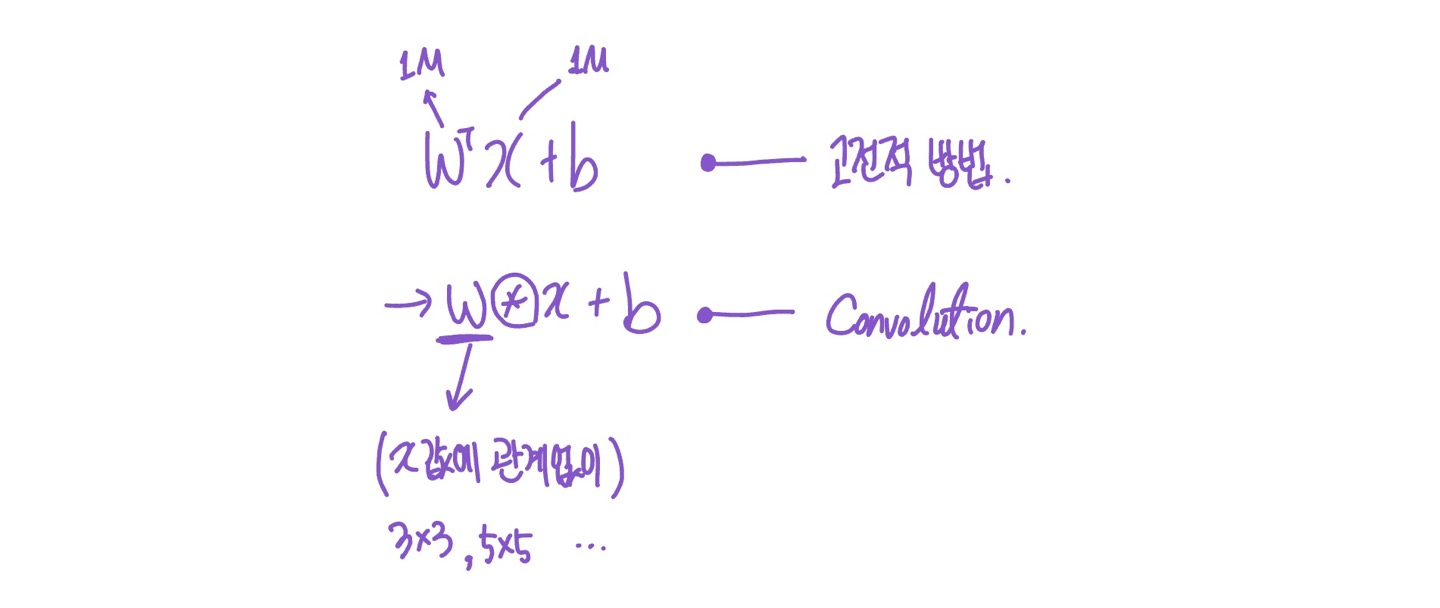 1M 1M
Wᵀx + b 고전적 방법.
→ W ⊛ x + b Convolution.
(x값에 관계없이)
3×3, 5×5 ...